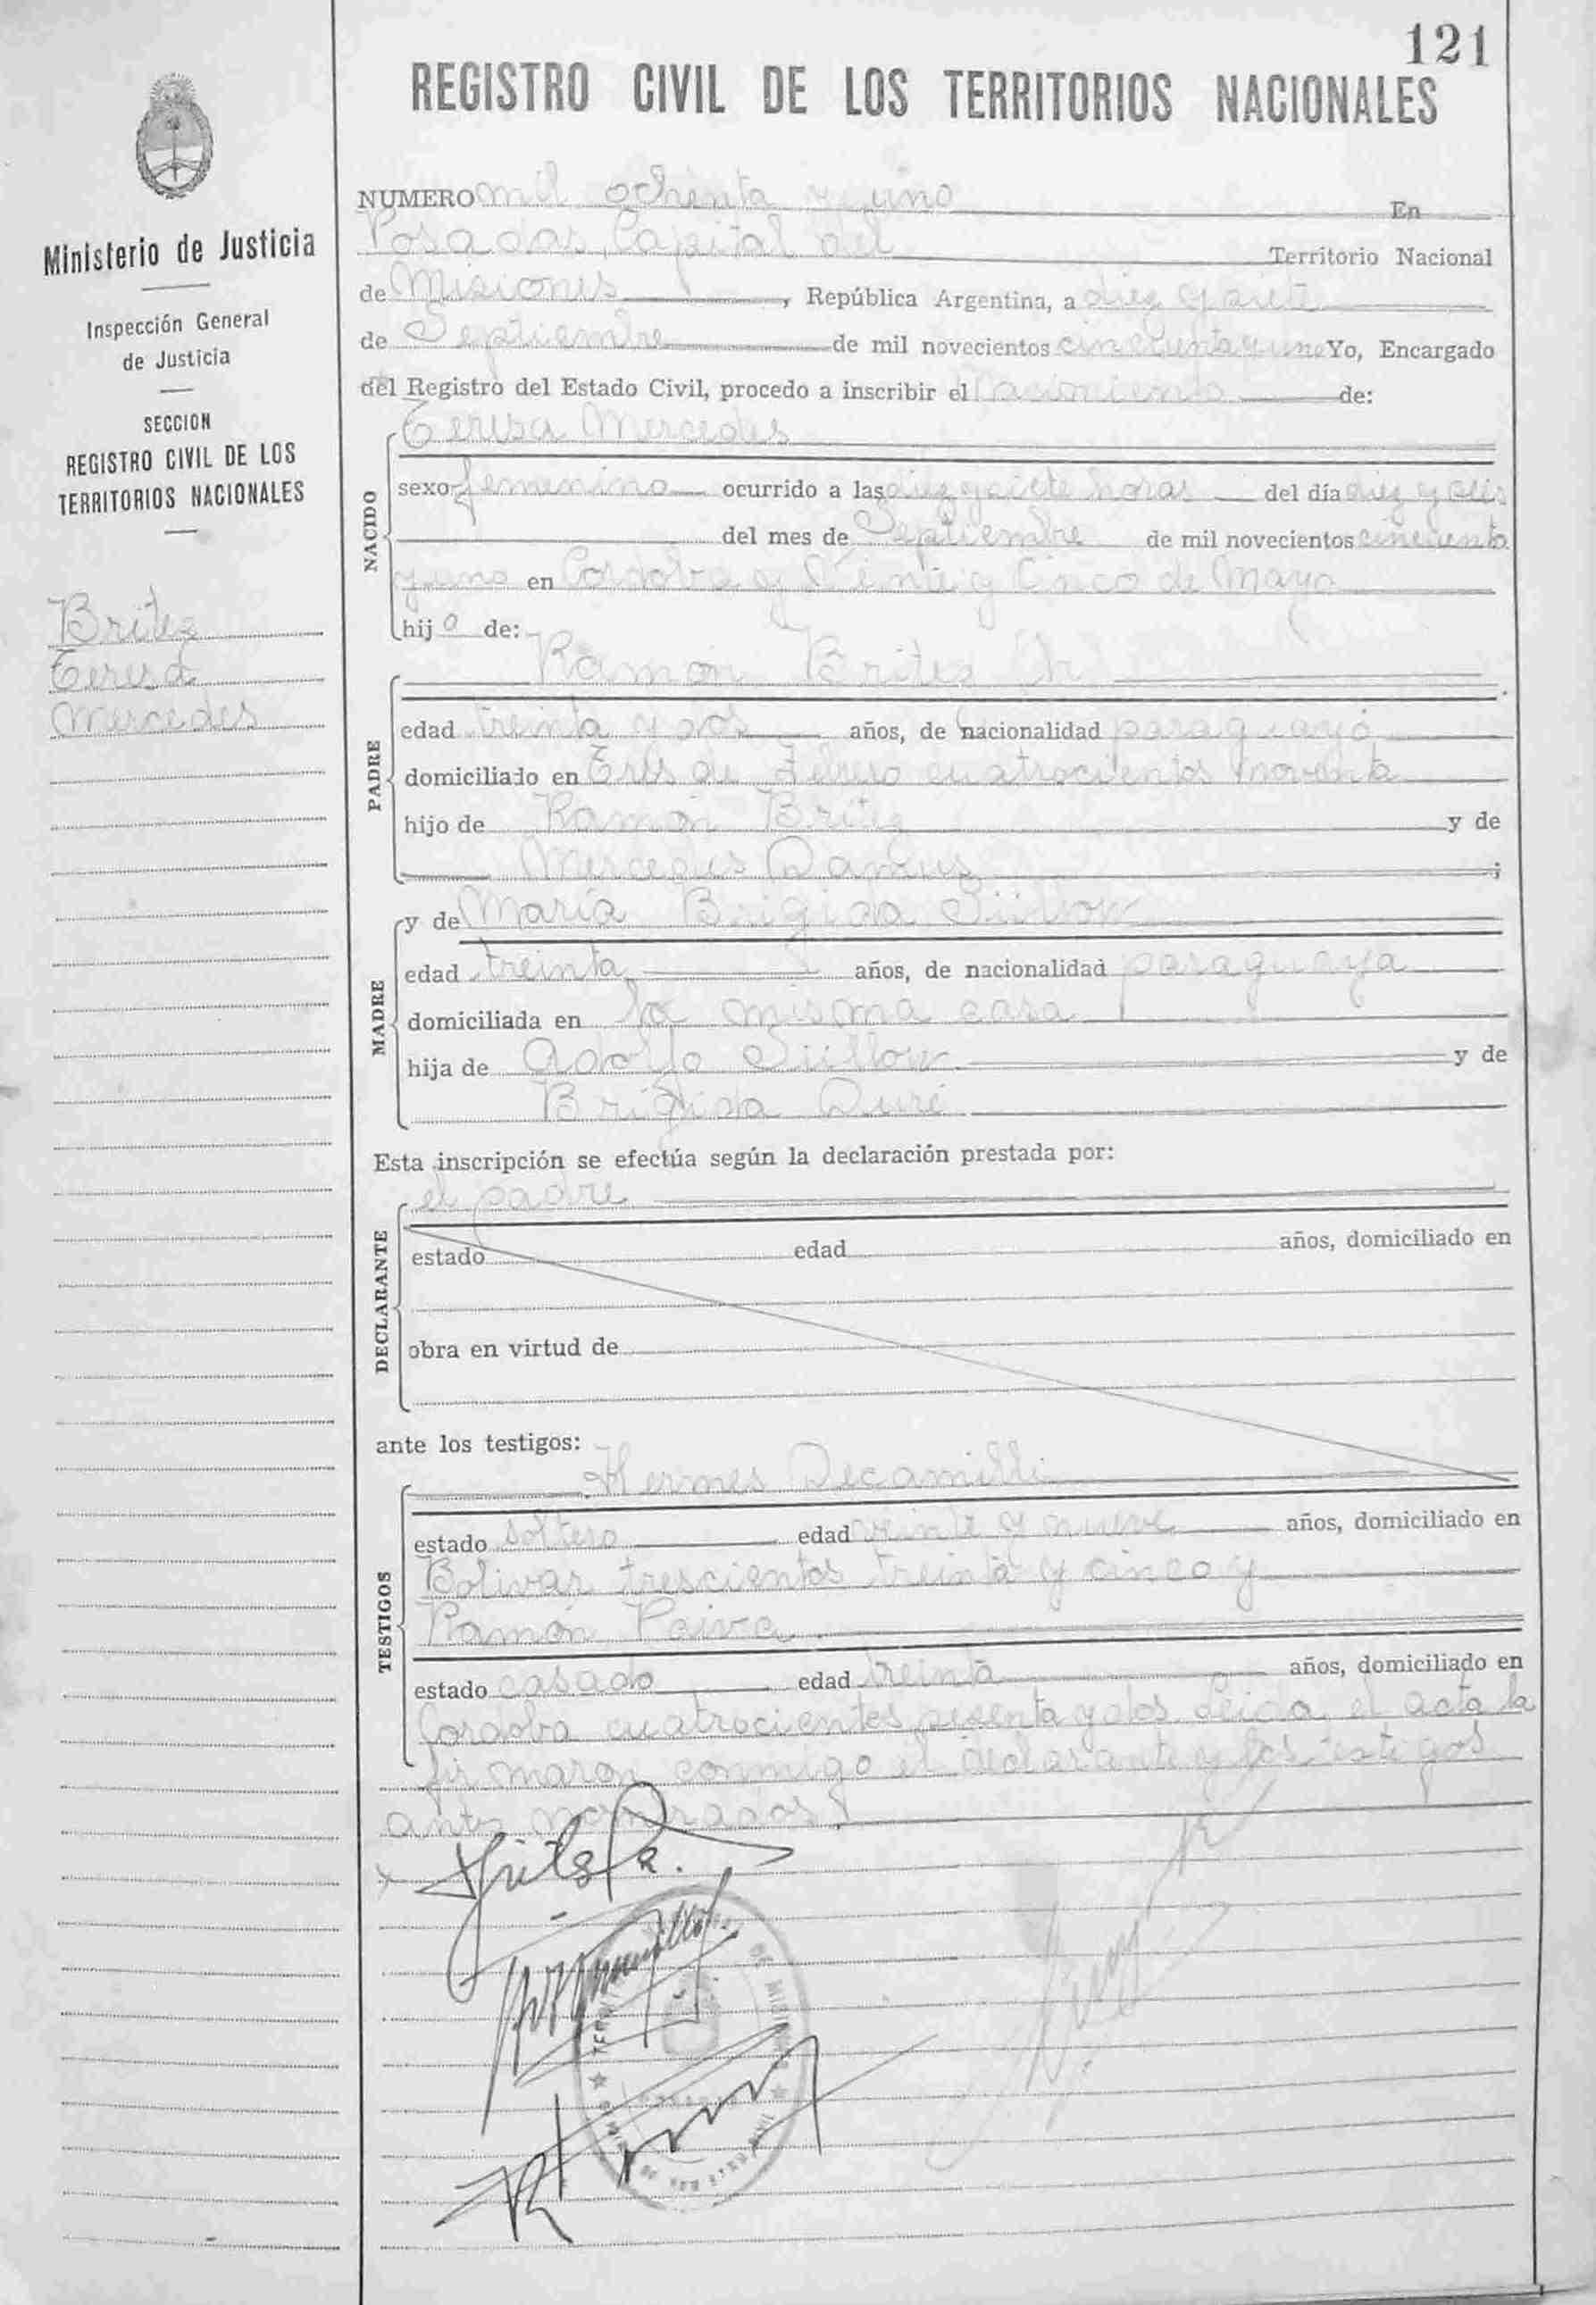 121
REGISTRO CIVIL DE LOS TERRITORIOS NACIONALES
Ministerio de Justicia
Inspección General
de Justicia
SECCION
REGISTRO CIVIL DE LOS
TERRITORIOS NACIONALES
Britez
Teresa
Mercedes
NUMERO mil ochenta y uno En
Posadas, Capital del Territorio Nacional
de Misiones, República Argentina, a diez y siete
de Septiembre de mil novecientos cincuenta y uno Yo, Encargado
del Registro del Estado Civil, procedo a inscribir el Nacimiento de:
NACIDO
Teresa Mercedes
sexo femenino ocurrido a las diez y siete horas del día diez y seis
del mes de Septiembre de mil novecientos cincuenta
y uno en Córdoba y Veinte y Cinco de Mayo
hij a de:
PADRE
Ramón Britez (h)
edad treinta y dos años, de nacionalidad paraguayo
domiciliado en Tres de Febrero cuatrocientos noventa
hijo de Ramón Britez y de
Mercedes ;
MADRE
y de María Brígida Süillow
edad treinta años, de nacionalidad paraguaya
domiciliada en la misma casa
hija de Adolfo Süillow y de
Brígida Duré
Esta inscripción se efectúa según la declaración prestada por:
el padre
DECLARANTE
estado edad años, domiciliado en
obra en virtud de
ante los testigos:
TESTIGOS
Hermes Decamilli
estado soltero edad veinte y nueve años, domiciliado en
Bolivar trescientos treinta y cinco y
Ramón Paiva
estado casado edad treinta años, domiciliado en
Córdoba cuatrocientos sesenta y dos. Leida el acta la
firmaron conmigo el declarante y los testigos
antes nombrados.
DE MISIONES